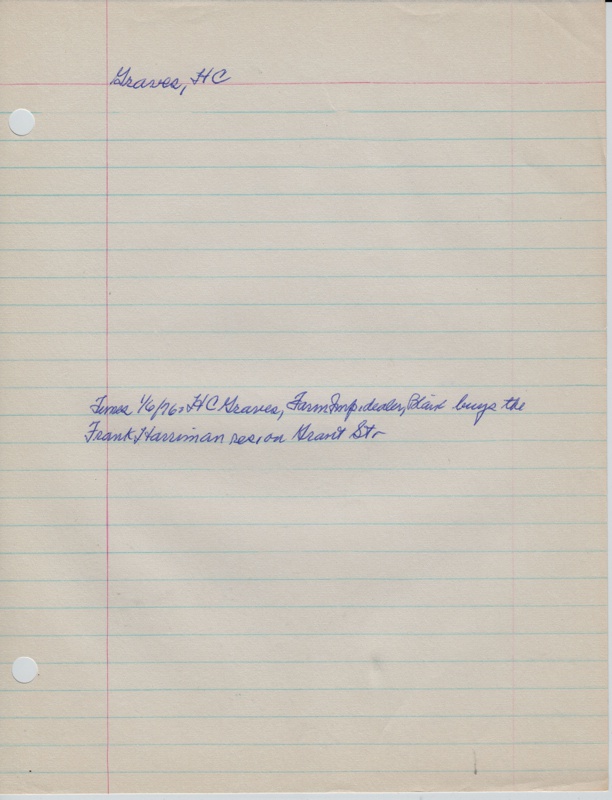 Graves, HC
Times 1/6/76: HC Graves, Farm Imp. dealer, Blair buys the
Frank Harriman res. on Grant St.